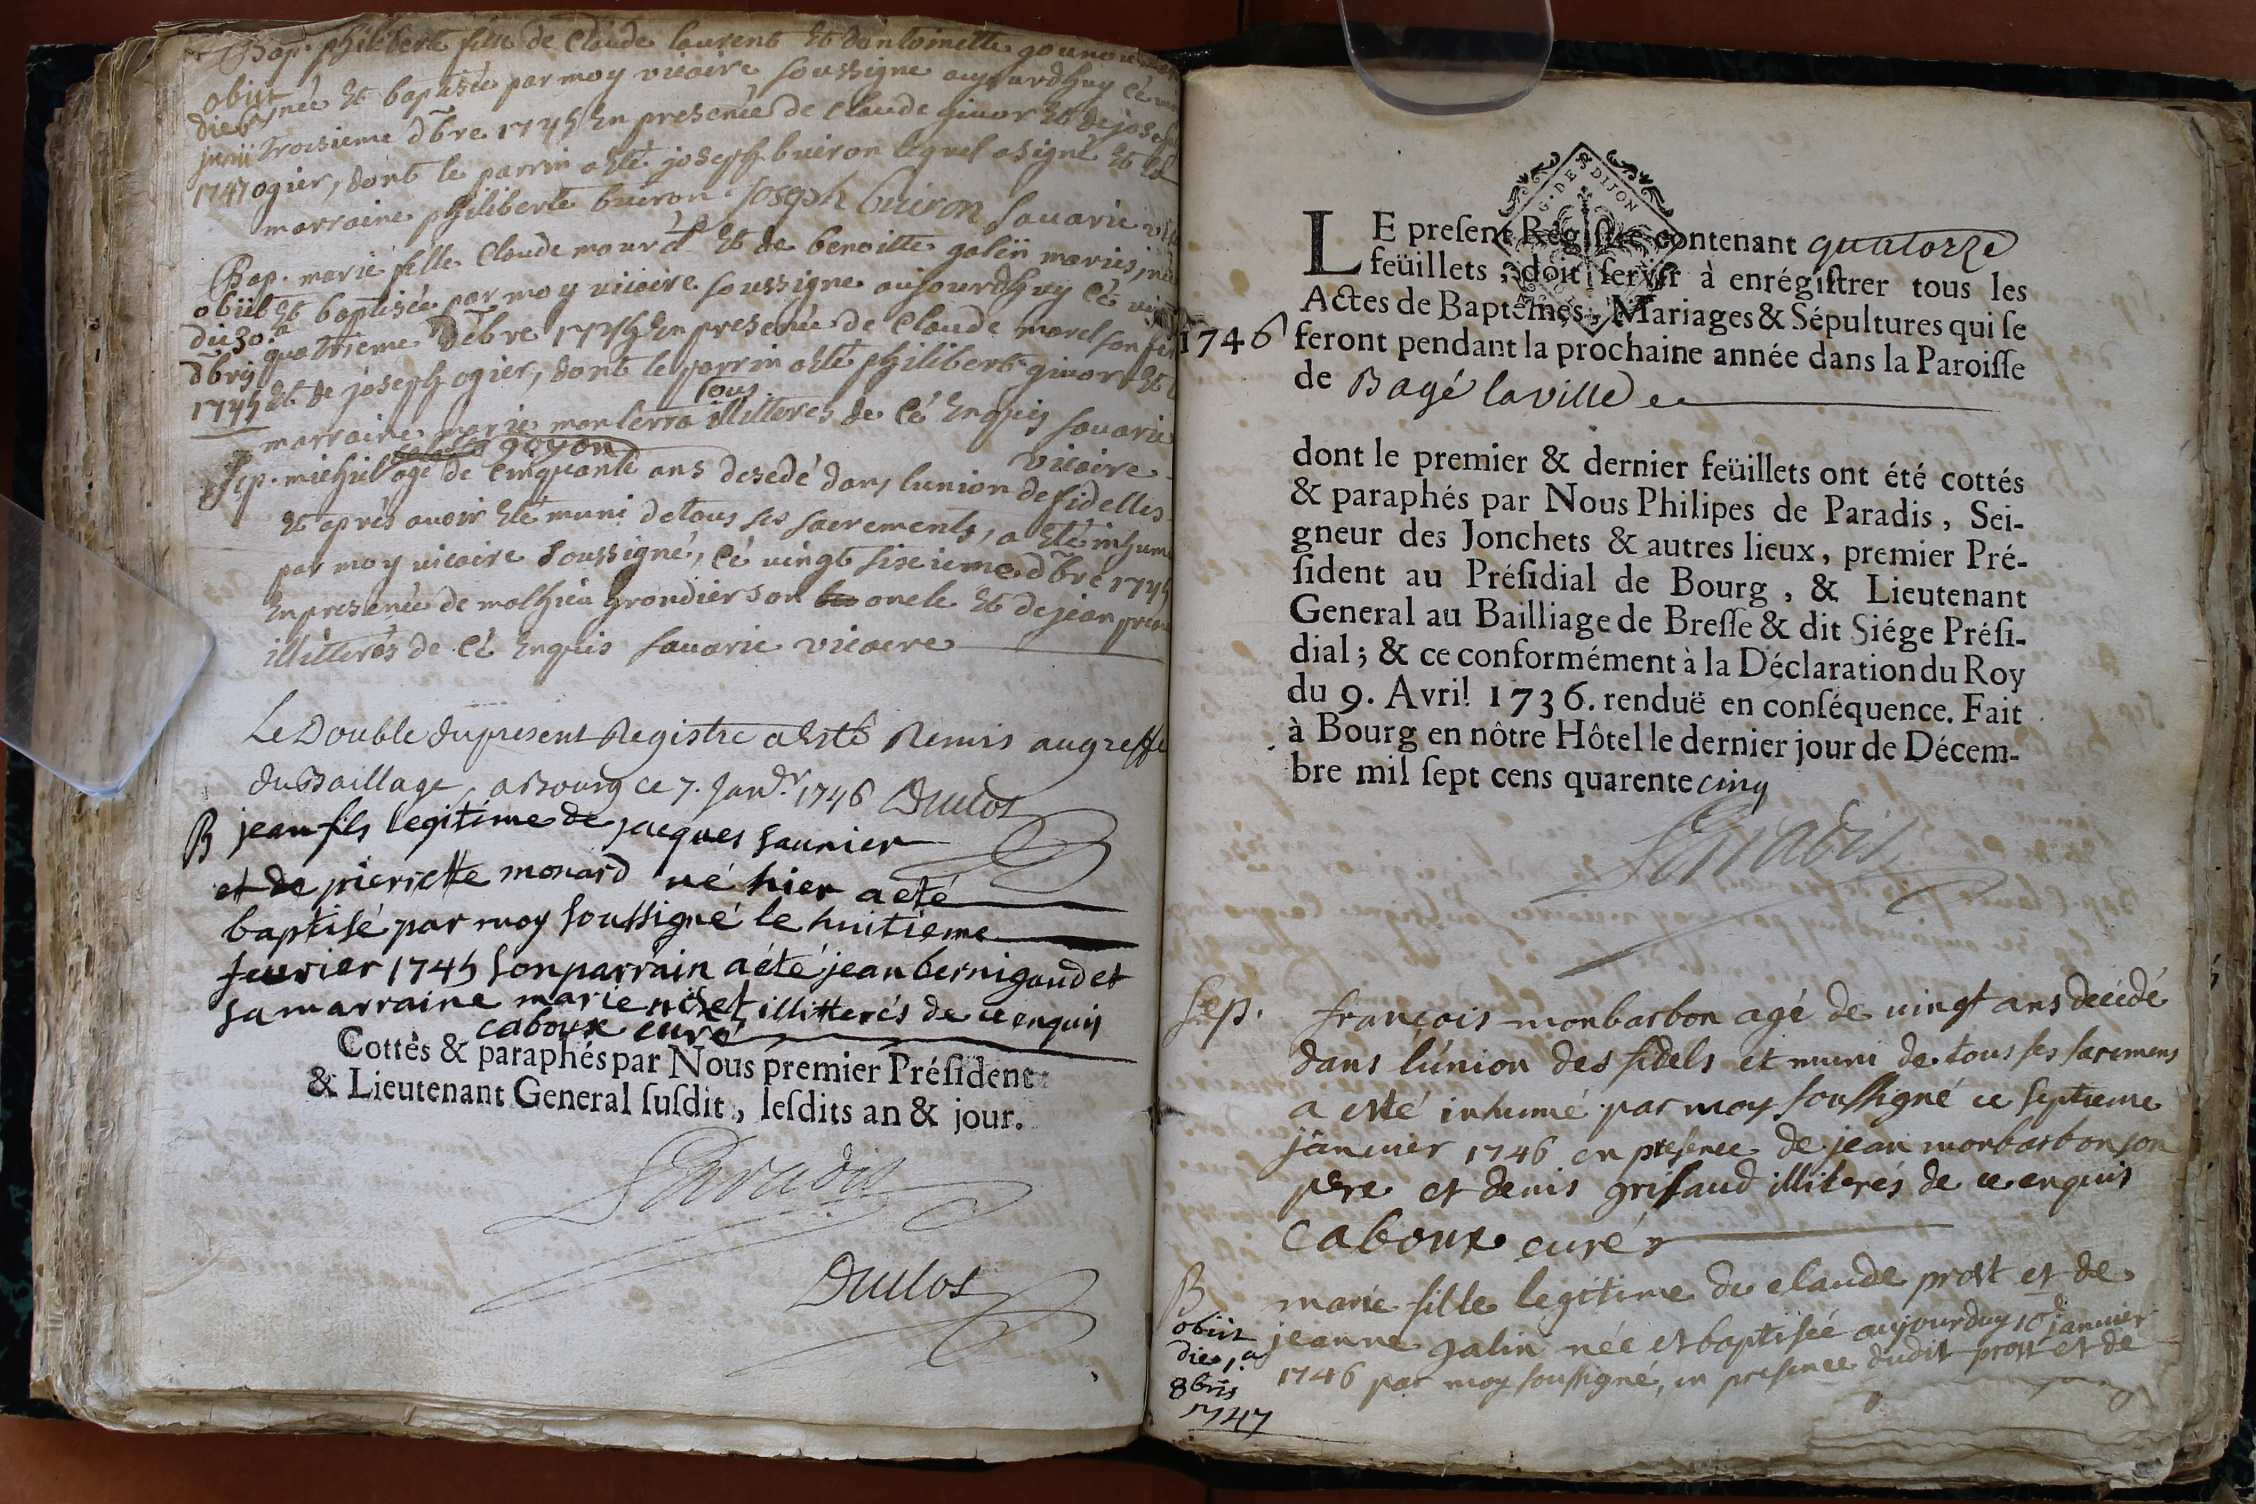 Bap. philiberte fille de Claude laurent et dantoinette gounou
obiit
die
junii
1747
née et baptisée par moy vicaire soussigne aujourdhuy ce
troisieme dbre 1745 En presence de Claude givor et de joseph
ogier, dont le parrin a été joseph buiron lequel a signé et la
marraine philiberte buiron Joseph buiron Savarie
Bap. marie fille Claude mourd et de benoitte galin mariés, née
obiit
die 30.a
dbris
1745
et baptisée par moy vicaire soussigne aujourdhuy ce vingt
quatrieme Debre 1745 En presence de Claude morel son
et de joseph ogier, dont le parrin a été philibert givor et
marraine marie monterra tous illitteres de ce Enquis Savarie
vicaire
goyon
Sep. michiel agé de Cinquante ans desedé dans lunion de fidelles
et après avoir été muni de tous ses sacrements, a été inhumé
par moy vicaire soussigné, ce vingt sisieme dbre 1745
En presence de mathieu grondier son oncle et de jean
illitterés de ce Enquis Savarie vicaire
Le Double du present Registre a esté Remis au greffe
du Baillage, a Bourg ce 7. Janv. 1746 Duclos
B jean fils legitime de jacques saunier
et de pierrette monard né hier a eté
baptisé par moy soussigné le huitième
fevrier 1745 son parrain a été jean bernigaud et
sa marraine marie nizet illitterés de ce enquis
caboux curé
Cottès & paraphés par Nous premier Présidenc
& Lieutenant General susdit, lesdits an & jour.
Paradis
Duclos
G. DES DIJON
LE present Registre contenant quatorze
feüillets, doit servir à enrégistrer tous les
Actes de Baptêmes, Mariages & Sépultures qui se
1746 feront pendant la prochaine année dans la Paroisse
de Bagé la ville
dont le premier & dernier feüillets ont été cottés
& paraphés par Nous Philipes de Paradis, Sei-
gneur des Jonchets & autres lieux, premier Pré-
sident au Présidial de Bourg, & Lieutenant
General au Bailliage de Bresse & dit Siége Prési-
dial; & ce conformément à la Déclaration du Roy
du 9. Avril 1736. renduë en conséquence. Fait
à Bourg en nôtre Hôtel le dernier jour de Décem-
bre mil sept cens quarente cinq
Paradis
Sep. françois monbarbon agé de vingt ans decédé
dans l'union des fidels et muni de tous ses sacremens
a esté inhumé par moy soussigné ce septieme
janvier 1746 en presence de jean monbarbon son
pere et denis grisaud illiterés de ce enquis
caboux curé
B marie fille legitime de claude prost et de
obiit
die 1.a
8bris
1747
jeanne galin née et baptisée aujourduy 10 janvier
1746 par moy soussigné, en presence dudit prost et de